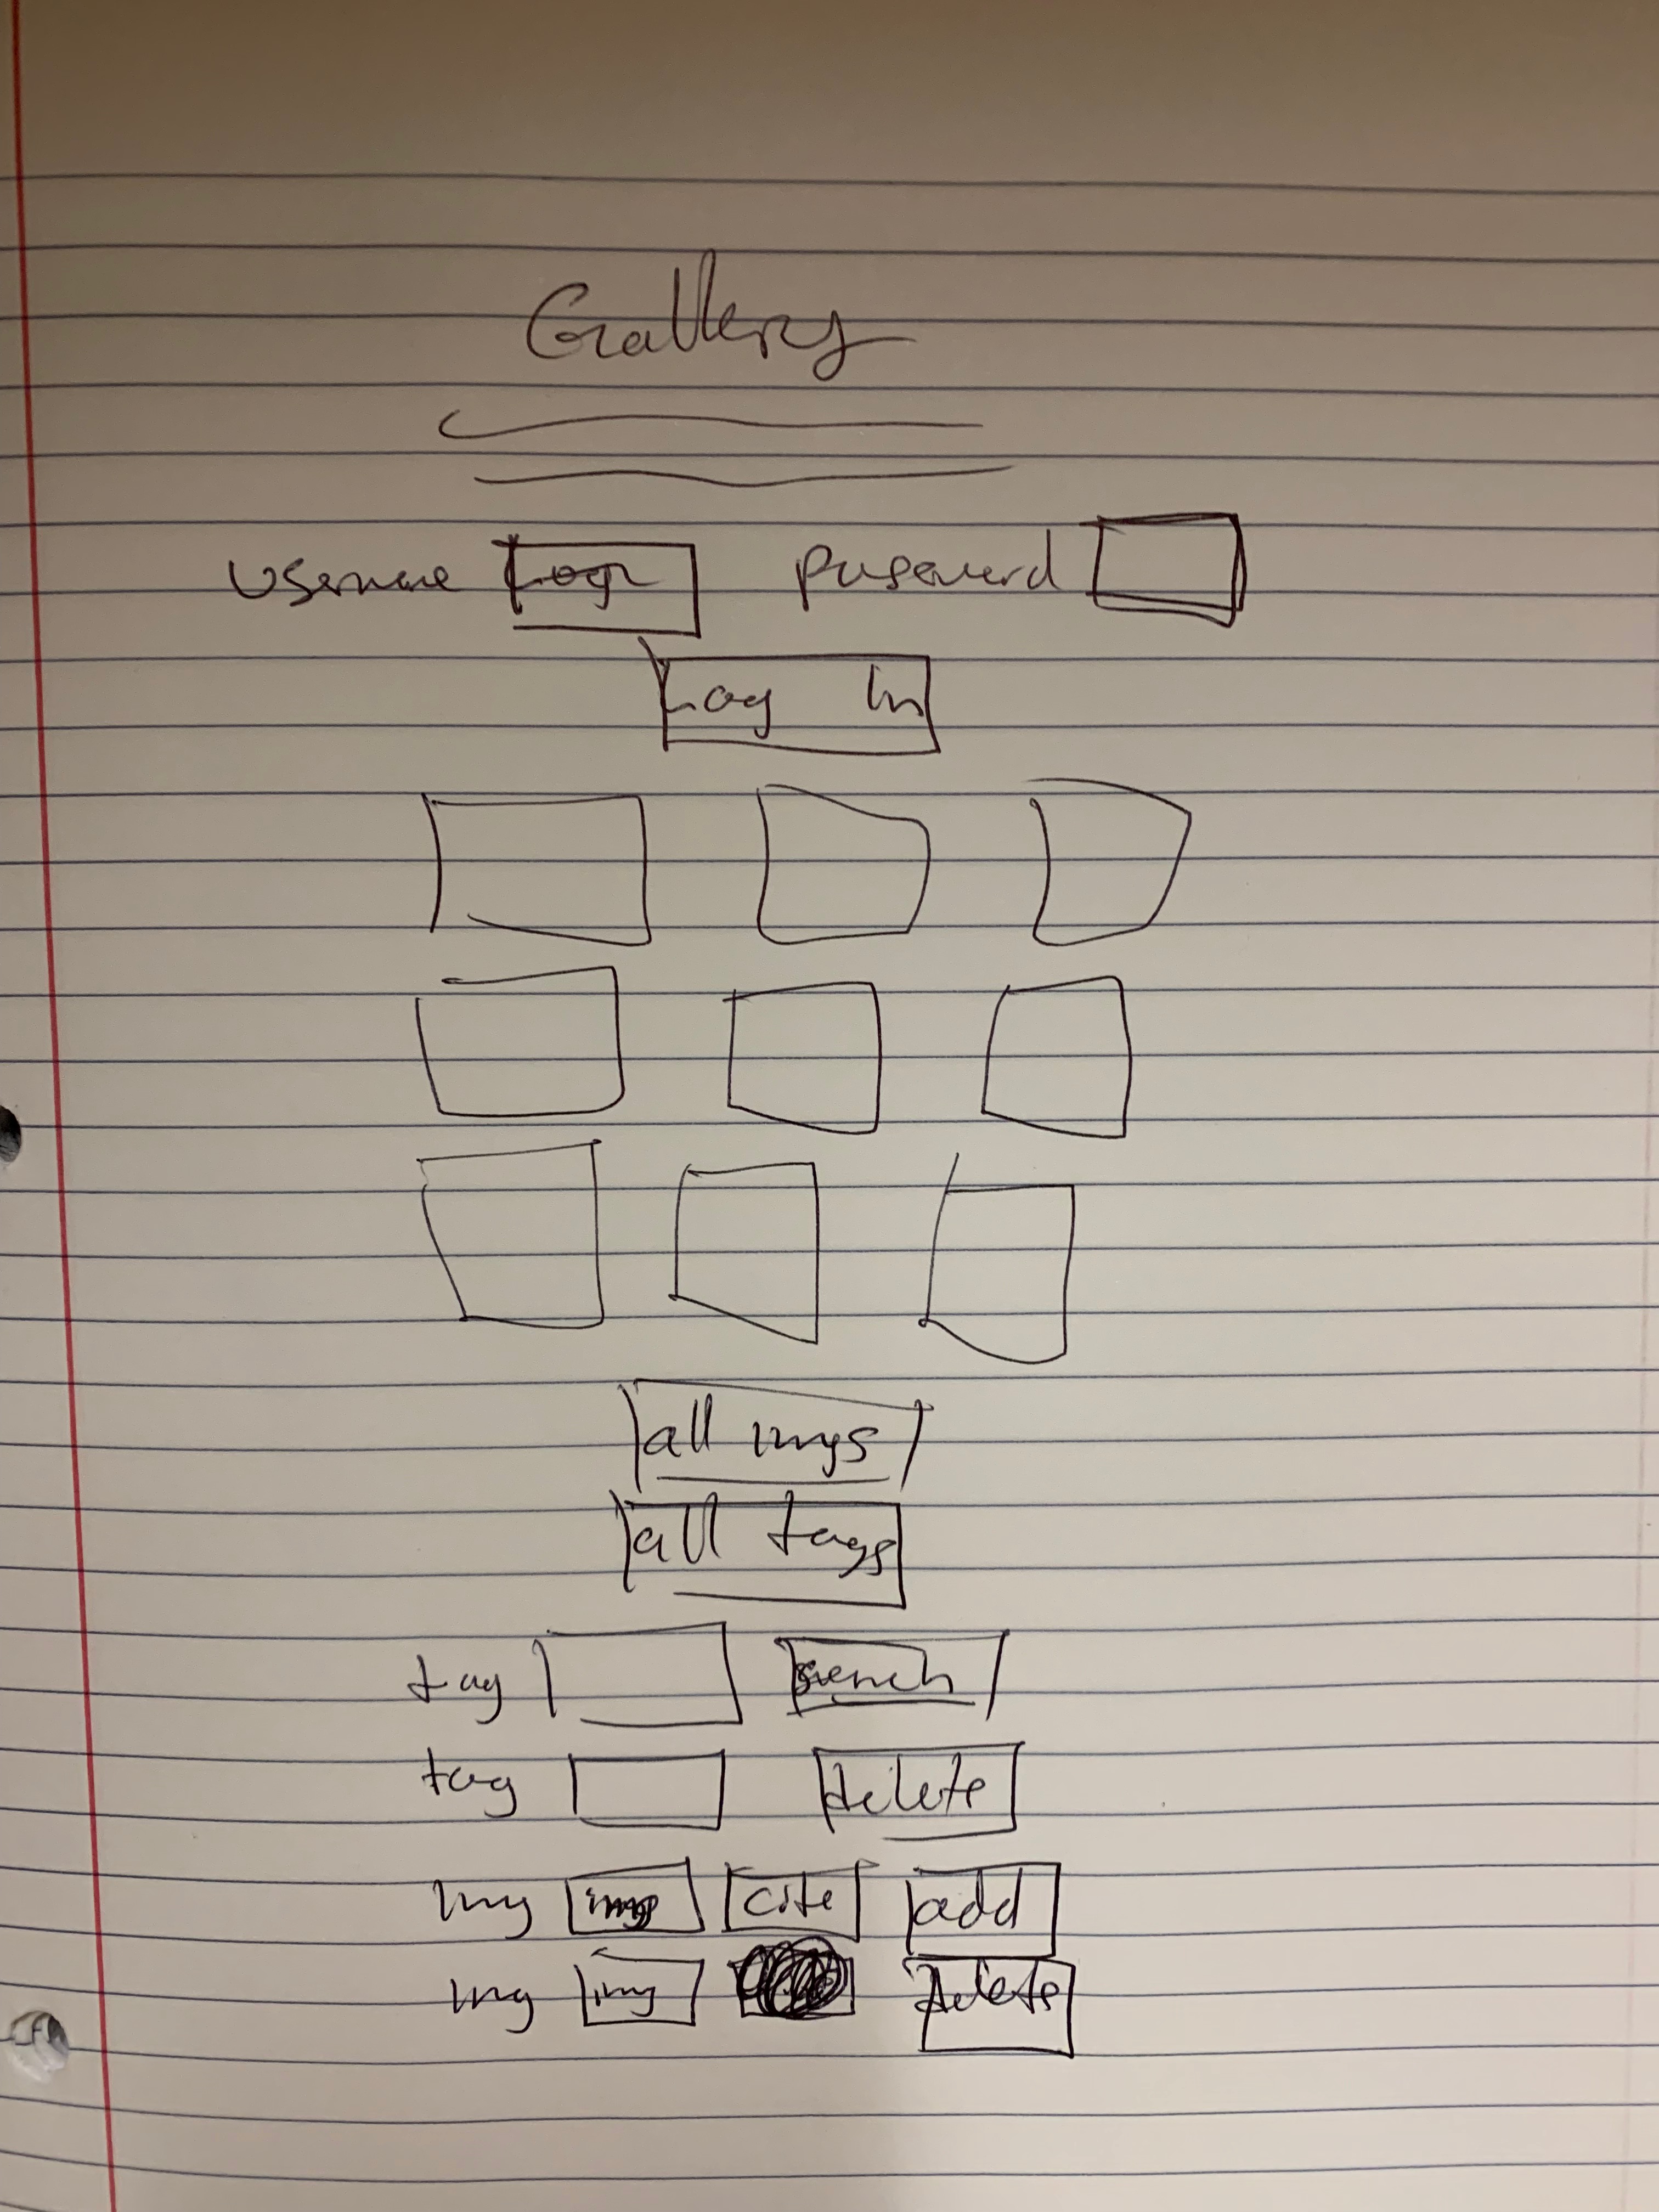 Gallery
Username Login password
Log In
all imgs
all tags
tag search
tag delete
img img cite add
img img delete